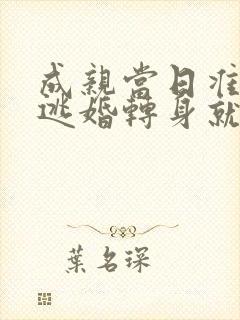 成親當日准
逃婚轉身就
葉名琛